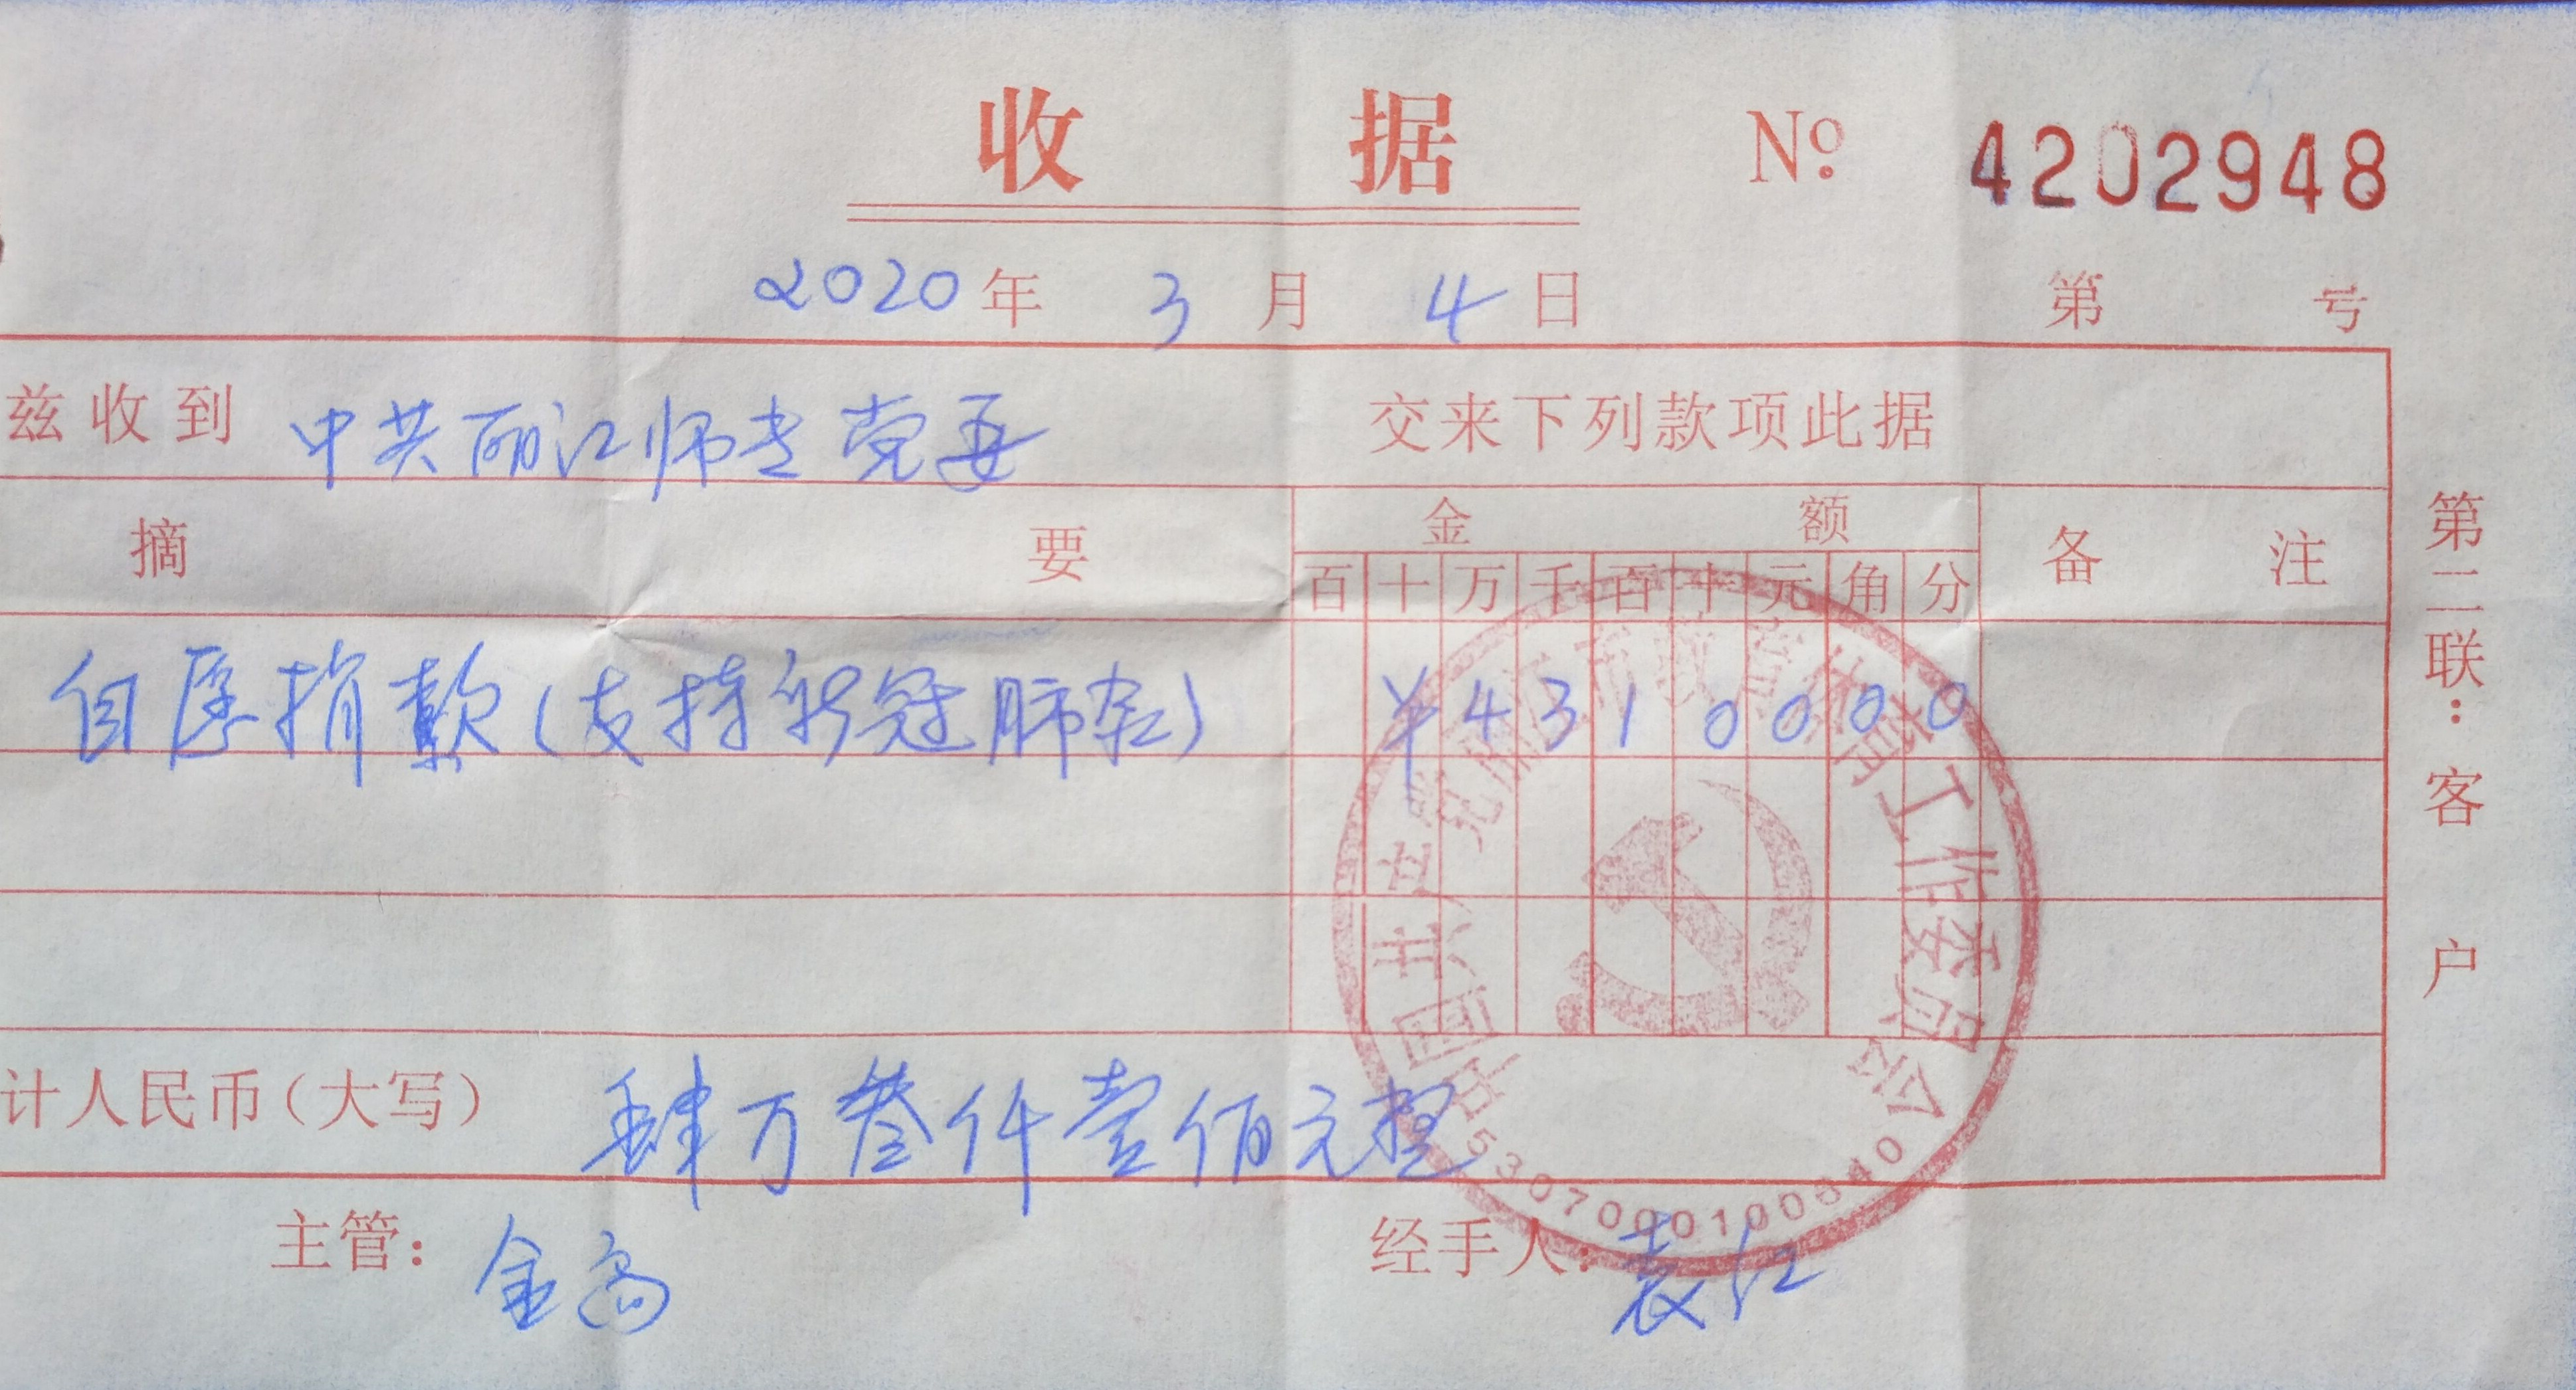 收 据 № 4202948
2020 年 3 月 4 日 第 号
兹收到 中共丽江师专党委 交来下列款项此据
摘 要 金 额 备 注
百 十 万 千 百 十 元 角 分
自愿捐款(支持新冠肺炎) ¥4310000
计人民币(大写) 肆万叁仟壹佰元整
主管: 金高 经手人: 袁江
第二联:客户
中国共产党丽江市 工作委员会